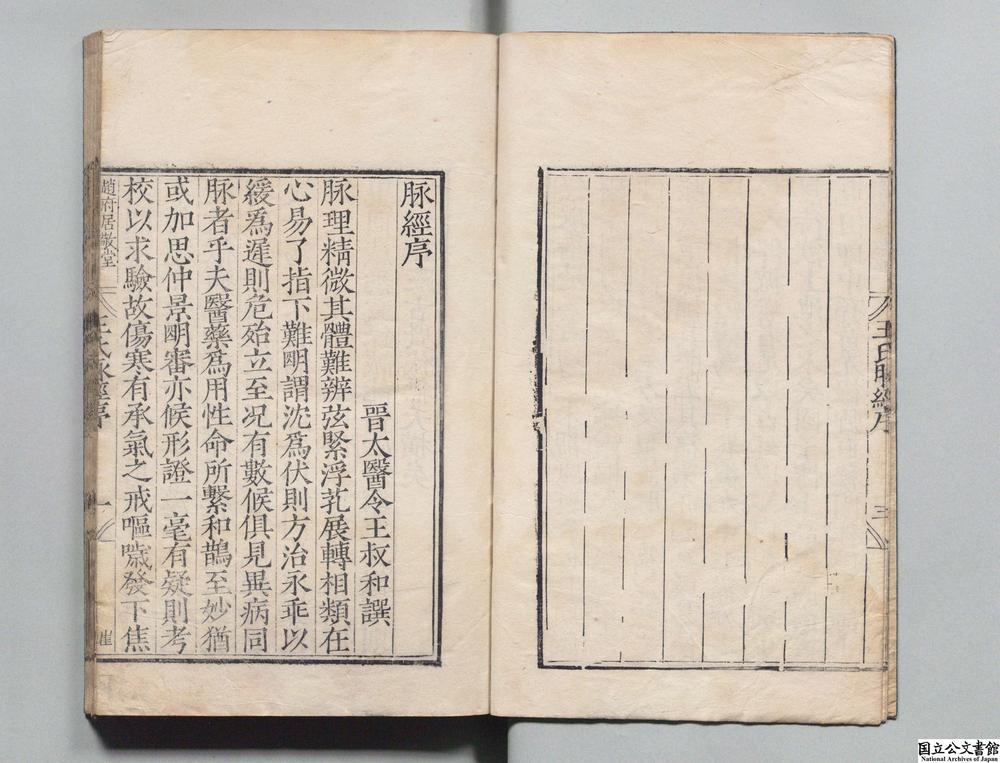 王氏脉經序
三
脉經序
晋太醫令王叔和譔
脉理精微其體難辨弦緊浮芤展轉相類在
心易了指下難明謂沈爲伏則方治永乖以
緩爲遲則危殆立至况有數候俱見異病同
脉者乎夫醫藥爲用性命所繫和鵲至妙猶
或加思仲景明審亦候形證一毫有疑則考
校以求驗故傷寒有承氣之戒嘔噦發下焦
趙府居敬堂
王氏脉經序
一
崔
国立公文書館
National Archives of Japan